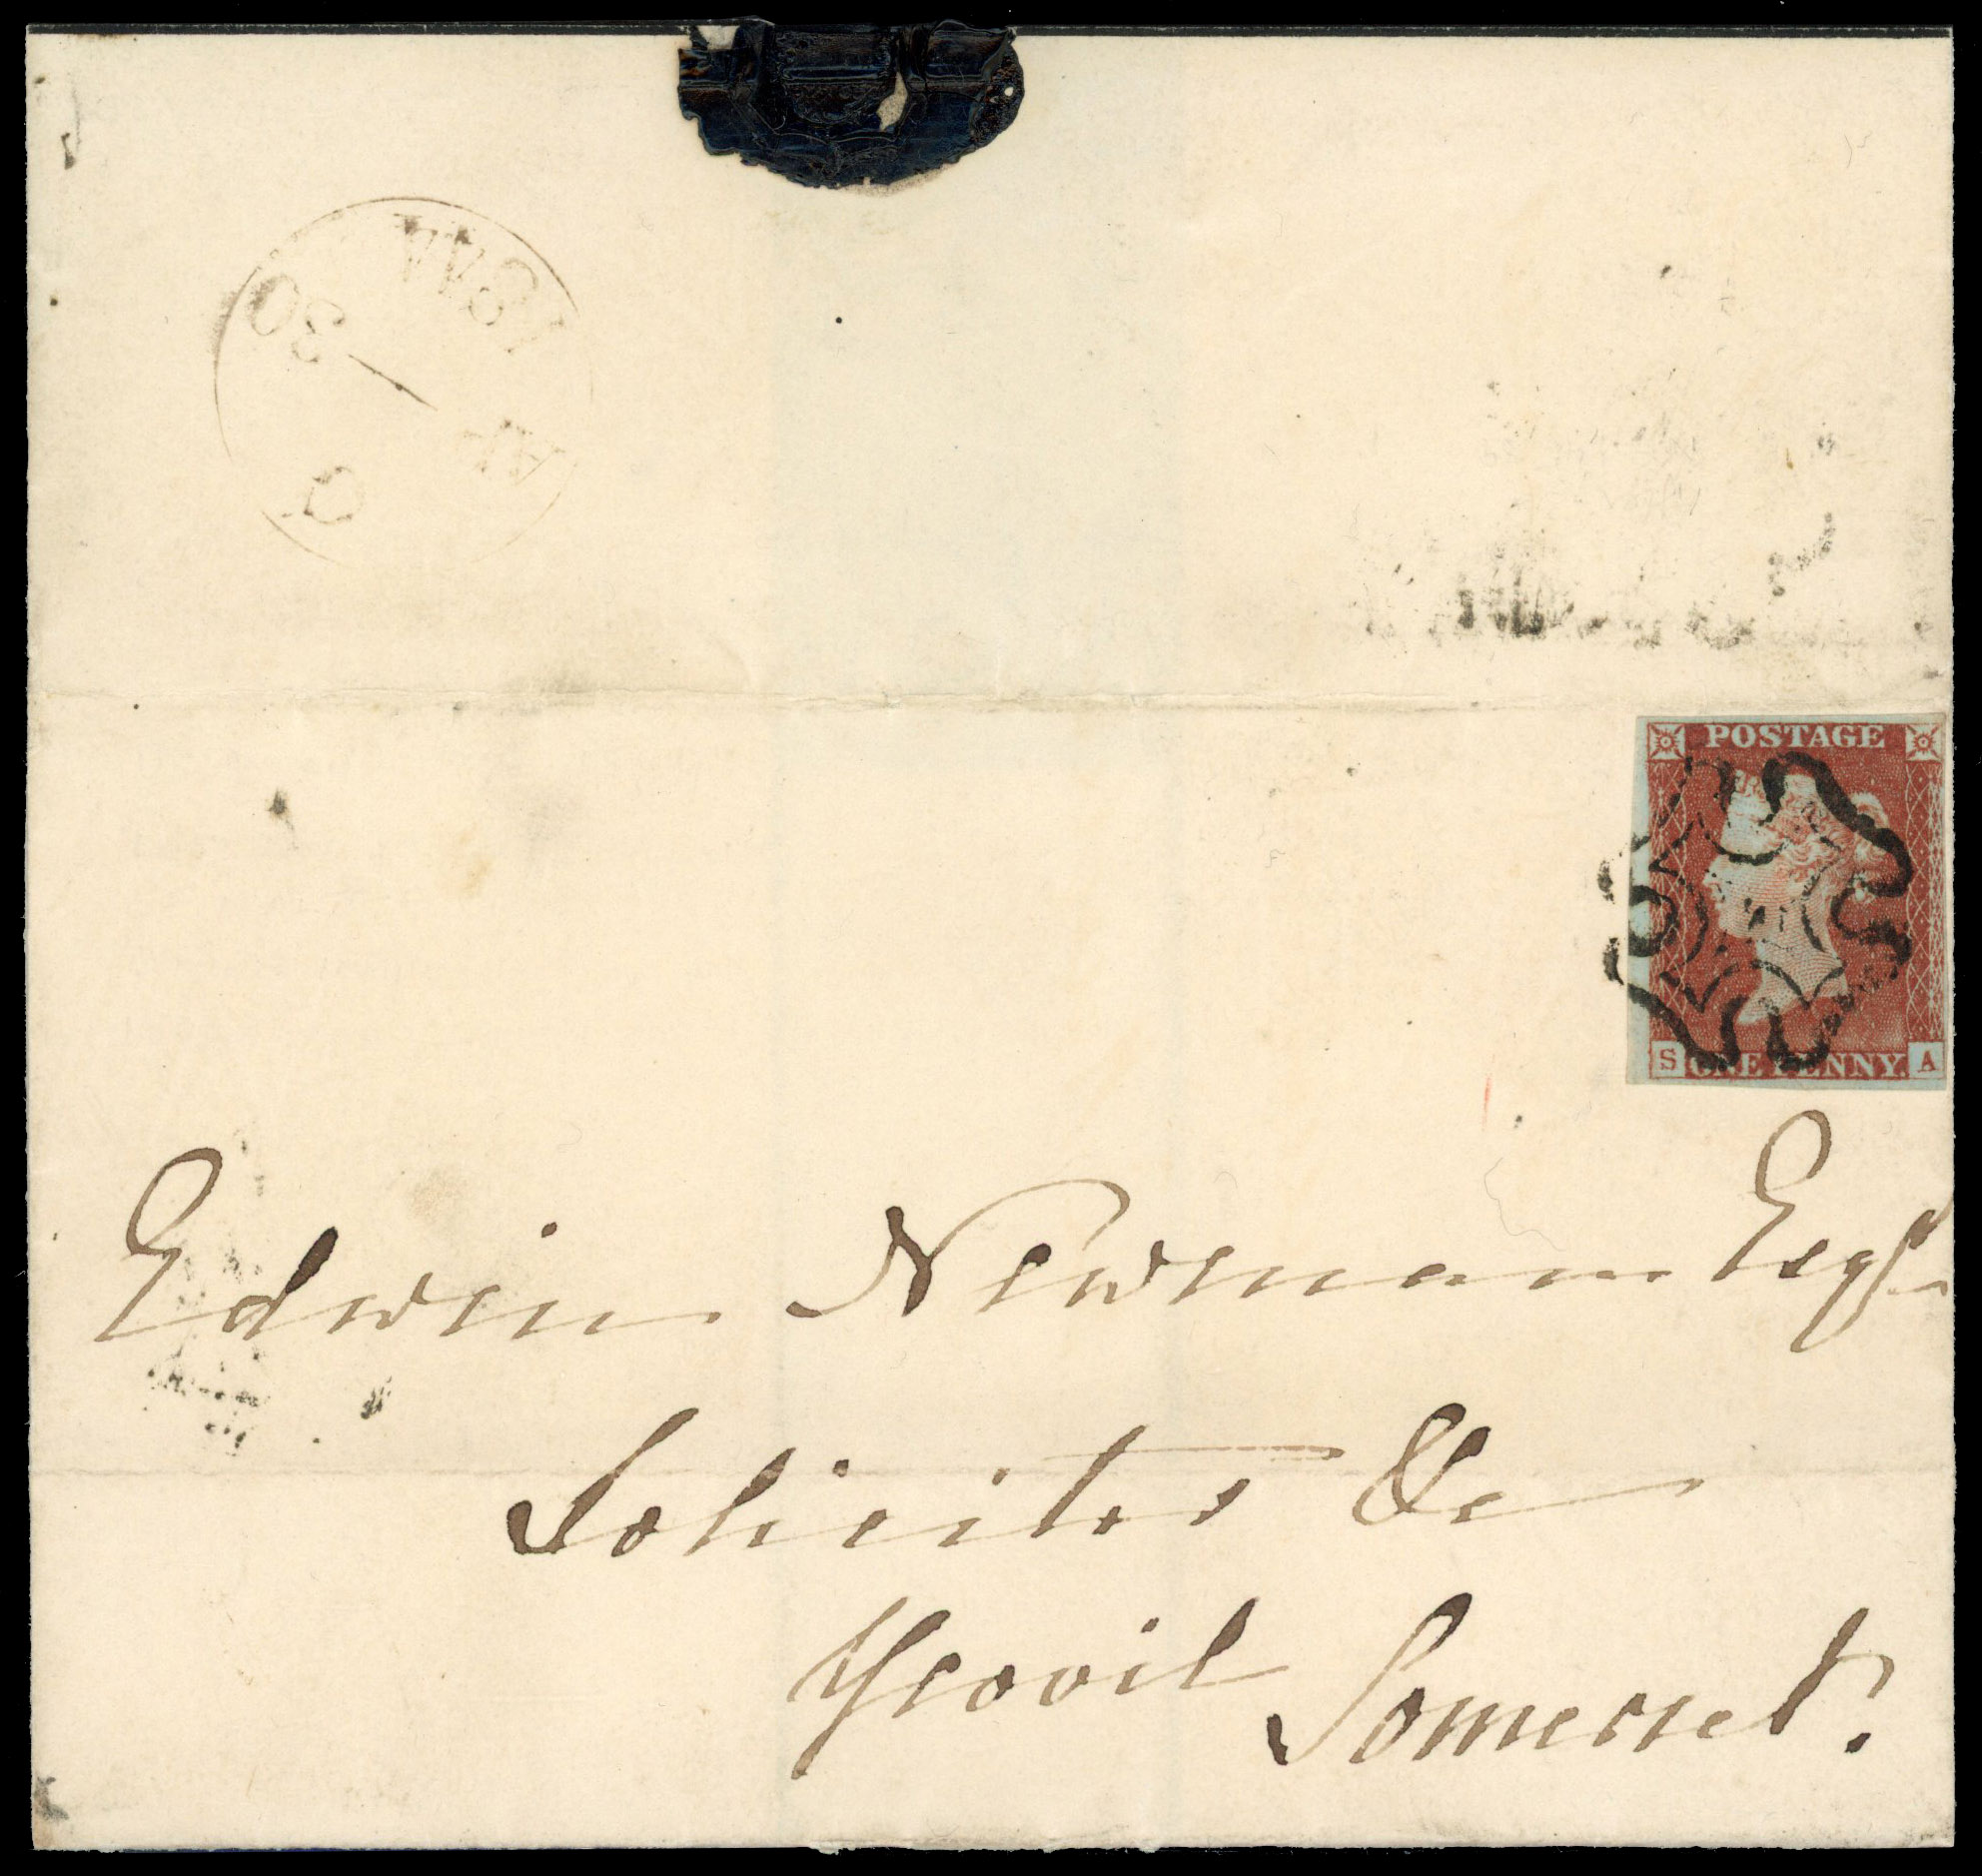 1844
AP 30
Q
POSTAGE
S ONE PENNY. A
Edwin Newman Esqr
Solicitor &c
Yeovil Somerset.